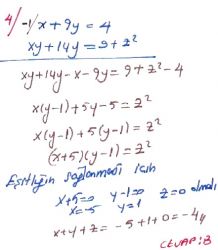 4/ -1/ x+9y = 4
xy+14y = 9+z²
xy+14y-x-9y = 9+z²-4
x(y-1)+5y-5=z²
x(y-1)+5(y-1)=z²
(x+5)(y-1)=z²
Eşitliğin sağlanması için
x+5=0 y-1=0 z=0 olmalı
x=-5 y=1
x+y+z=-5+1+0=-4
CEVAP:B